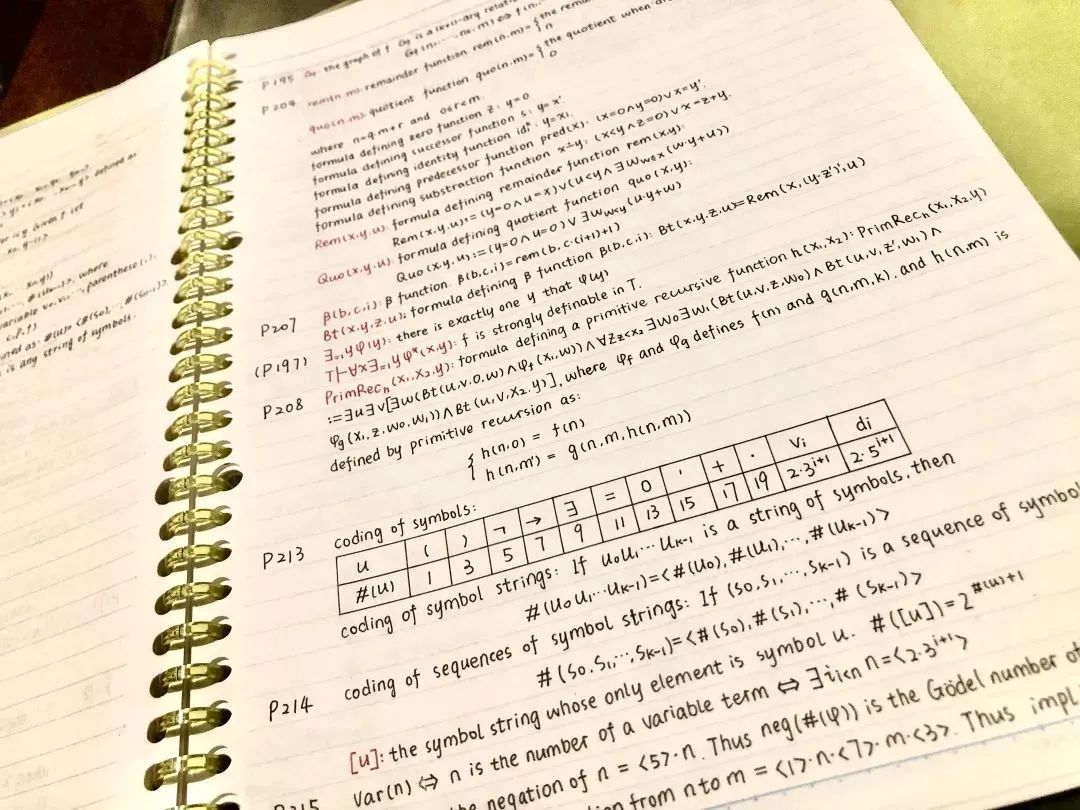 defined as
given f ist
#(uk-1)>, where
parenthese(,),
#(Sn-1)>.
is any string of symbols.
P195 Gf: the graph of f Gf is a
P204 rem(n,m): remainder function rem(n,m)={ the
n
quo(n,m): quotient function quo(n,m)={ the quotient when
0
where n=q·m+r and 0≤r<m.
formula defining zero function z: y=0
formula defining successor function s: y=x'
formula defining identity function y=xi
formula defining predecessor function pred(x): (x=0∧y=0)∨x=y'.
formula defining substraction function x∸y: (x<y∧z=0)∨x=z+y.
Rem(x,y,u): formula defining remainder function rem(x,y):
Rem(x,y,u):=(y=0∧u=x)∨(u<y∧∃w w≤x(w·y+u))
Quo(x,y,u): formula defining quotient function quo(x,y):
Quo(x,y,u):=(y=0∧u=0)∨∃w w<y(u·y+w)
P207 β(b,c,i): β function. β(b,c,i)=rem(b,c·(i+1)+1)
Bt(x,y,z,u): formula defining β function β(b,c,i): Bt(x,y,z,u)=Rem(x,(y·z')',u)
(P197) ∃=1yφ(y): there is exactly one y that φ(y)
T⊢∀x∃=1yφ*(x,y): f is strongly definable in T.
P208 PrimRech(x1,x2,y): formula defining a primitive recursive function h(x1,x2): PrimRech(x1,x2,y)
:=∃u∃v[∃w(Bt(u,v,0,w)∧φf(x1,w))∧∀z z<x2∃w0∃w1(Bt(u,v,z,w0)∧Bt(u,v,z',w1)∧
φg(x1,z,w0,w1))∧Bt(u,v,x2,y)], where φf and φg defines f(n) and g(n,m,k), and h(n,m) is
defined by primitive recursion as:
{ h(n,0) = f(n)
h(n,m') = g(n,m,h(n,m))
P213 coding of symbols:
u ( ) ¬ → ∃ = 0 ' + · vi di
#(u) 1 3 5 7 9 11 13 15 17 19 2·3^i+1 2·5^i+1
coding of symbol strings: If u0u1⋯uk-1 is a string of symbols, then
#(u0u1⋯uk-1)=<#(u0),#(u1),⋯,#(uk-1)>
P214 coding of sequences of symbol strings: If (s0,s1,⋯,sk-1) is a sequence of symbol
#(s0,s1,⋯,sk-1)=<#(s0),#(s1),⋯,#(sk-1)>
[u]: the symbol string whose only element is symbol u. #([u])=2^#(u)+1
P215 var(n)⇔n is the number of a variable term⇔∃i i<n n=<2·3^i+1>
the negation of n = <5>·n. Thus neg(#(φ)) is the Gödel number of
from n to m = <1>·n·<7>·m·<3>. Thus impl